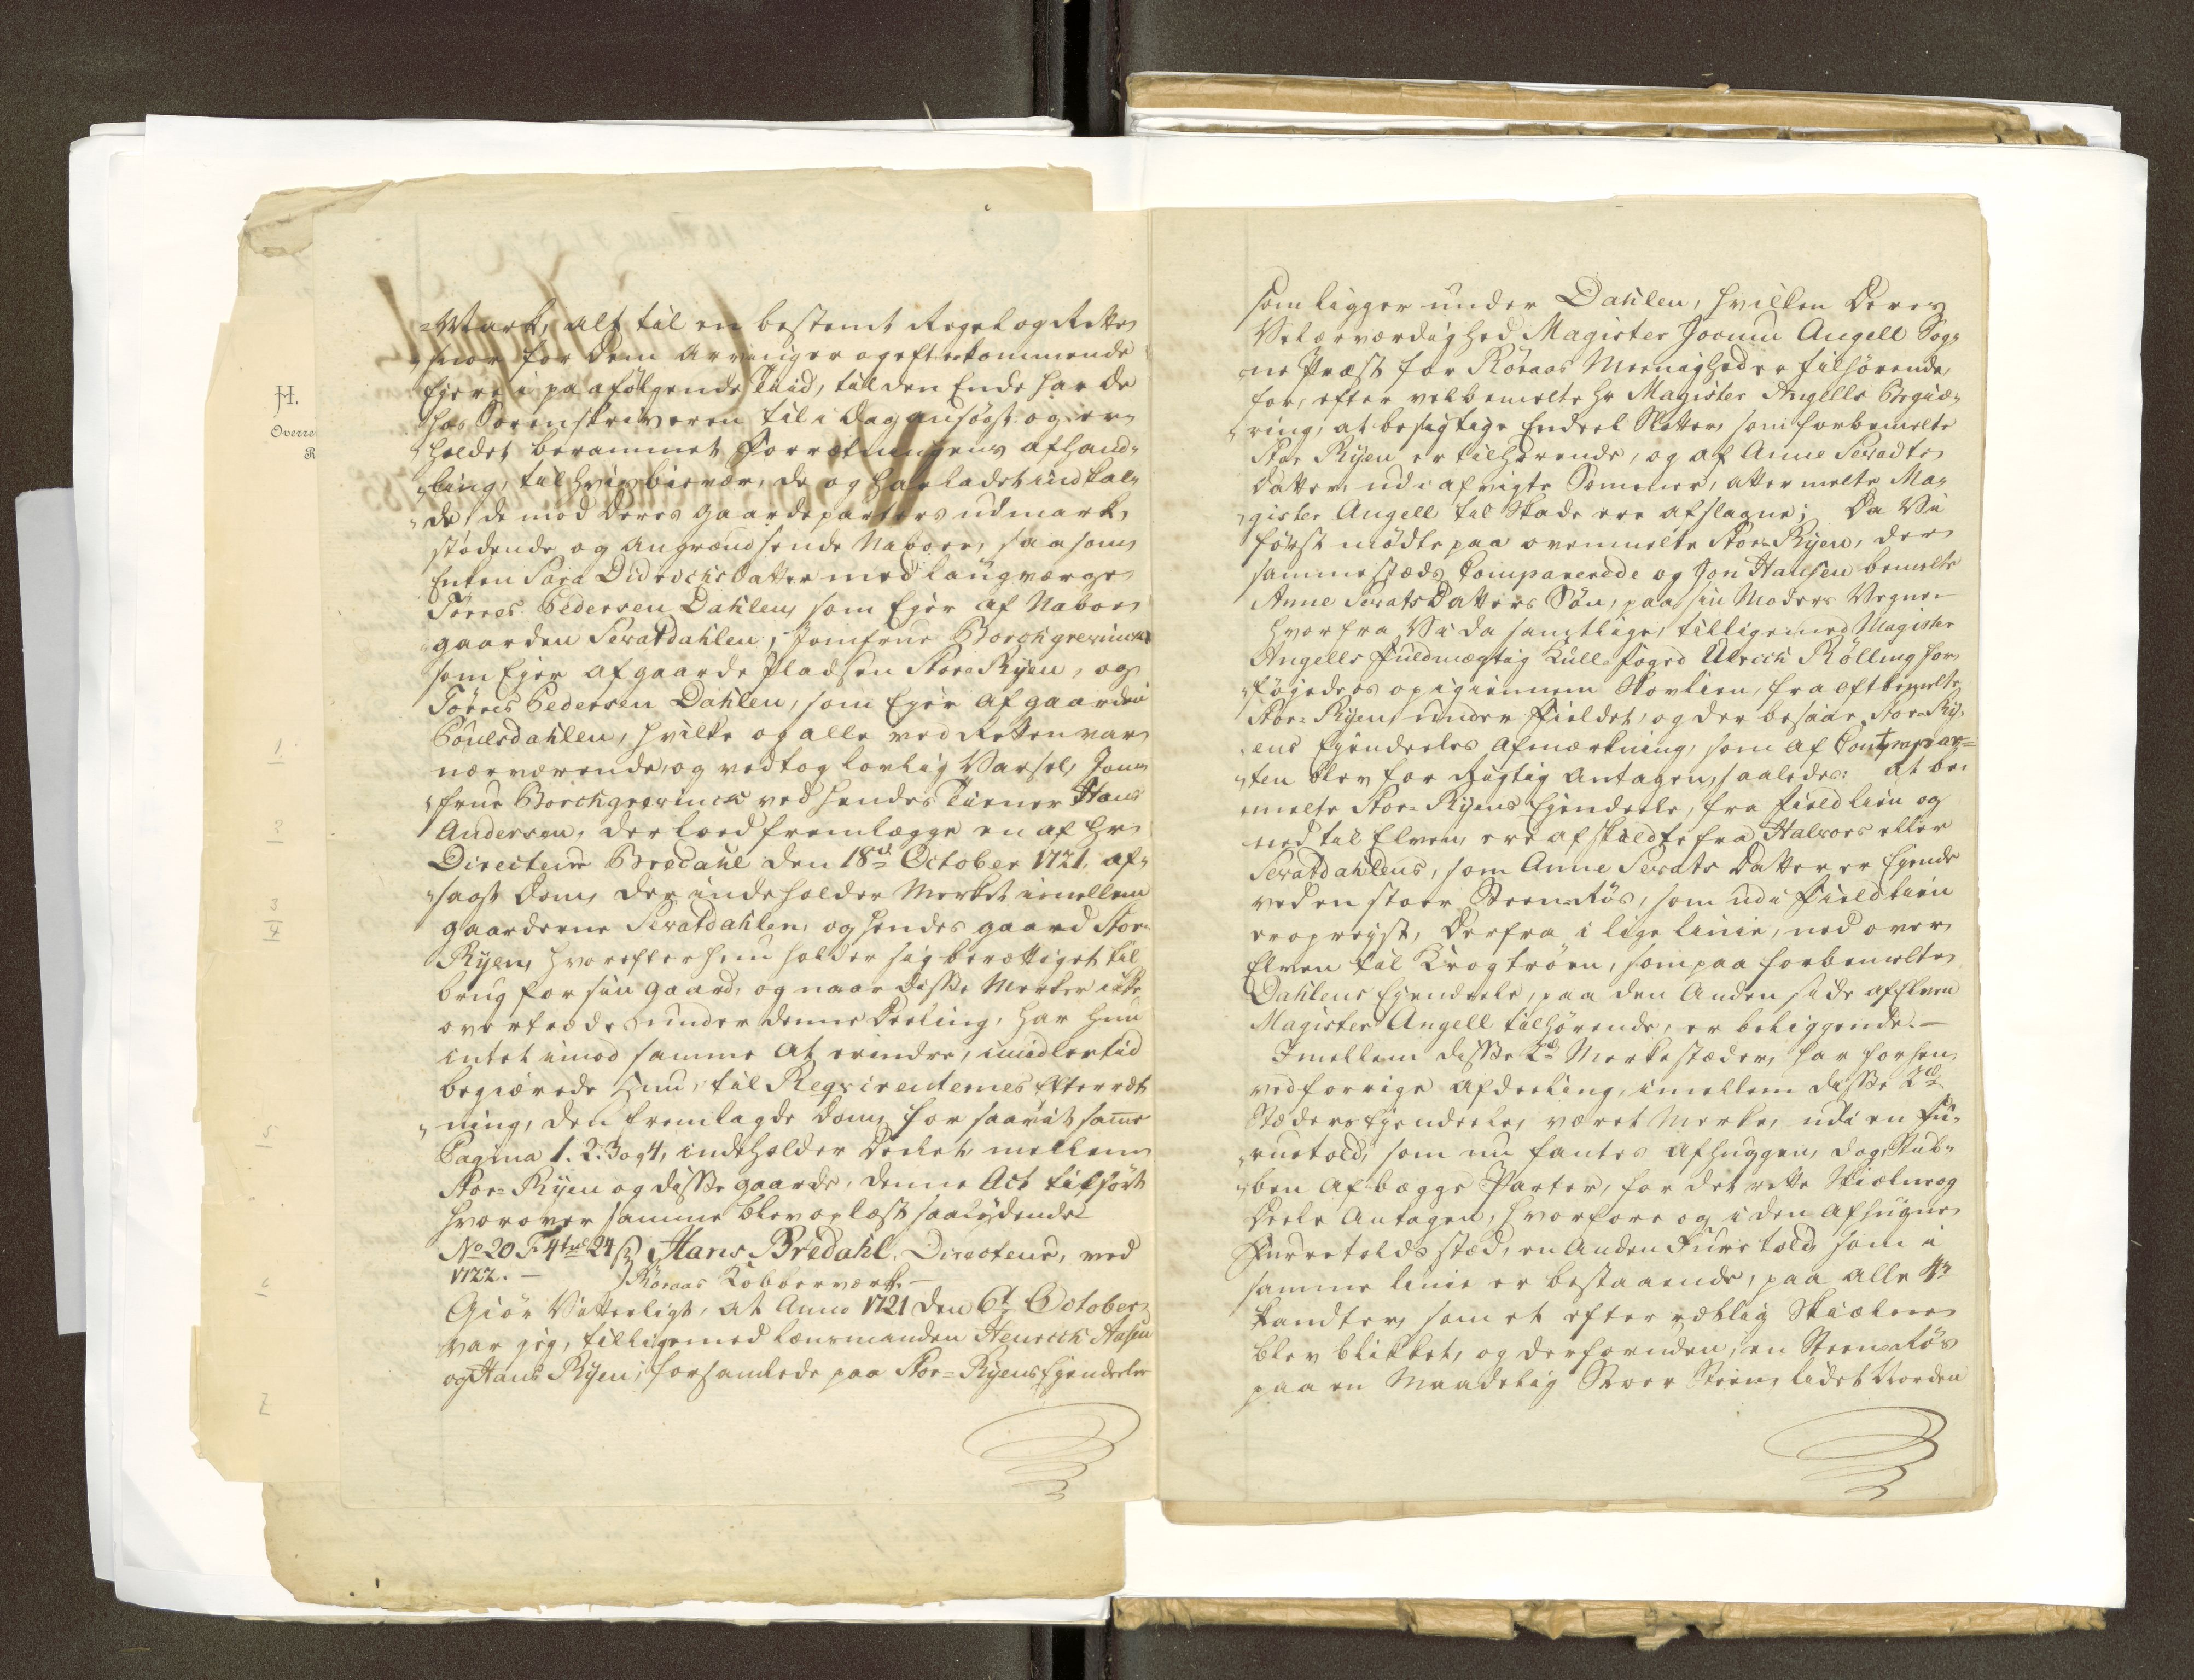 =Mark, alt til en bestemt Regel og Rette
snor for dem arvinger og efterkommende
Ejere i paafølgende Tiid, til den Ende har de
hos Sorenskriveren til i Dag ansøgt og er-
holdet berammet Forretningens afhand-
ling, til hvis bievær, de og har ladet indkal-
de, de mod deres gaardeparters udmark
stødende og angrændsende Naboer, saasom
Enken Sara Diderichsdatter med laugværge
Tørres Pedersen Dahlen, som Ejer af Nabo-
gaarden Sevatdahlen, Jomfrue Borchgrevinck
som Ejer af gaarde Pladsen Stor-Ryen, og
Tørres Pedersen Dahlen, som Ejer af gaarden
Poulsdahlen, hvilke og alle ved Retten var
nærværende, og vedtog lovlig Varsel, Jom-
frue Borchgrevinck ved hendes Tiener Hans
Andersen, der loed fremlægge en af Hr
Directeur Bredahl den 18de October 1721. af-
sagt Dom, der indeholder Merket imellem
gaardene Sevatdahlen, og hendes gaard Stor-
Ryen, hvorefter hun holder sig berættiget til
brug for sin gaard, og naar disse Merker ikke
overtrædes under denne Deeling, har hun
intet imod samme at erindre, imidlertid
begiærede hun, til Reqvirenternes Efterræt
ning, den fremlagde Dom, for saavit samme
Pagina 1. 2. 3 og 4, indeholder Deelet mellem
Stor-Ryen og disse gaarde, denne Act tilført
hvorover samme blev oplæst saalydende
No 20 F. 4 24 s Hans Bredahl. Directeur, ved
1722. — Röraas Kobberværk. —
Giör Vitterligt, at Anno 1721 den 6t October
var jeg, tilligemed Lensmanden Henrich
og Hans Ryen, forsamlede paa Stor-Ryens Ejendeele
som ligger under Dahlen, hvilken Deres
Velærværdighed Magister Jocum Angell Sog-
ne Præst for Röraas Meenighed er tilhørende,
for, efter velbemelte Hr Magister Angells Begiæ-
ring, at besigtige Endeel Sletter, som forbemelte
Stor Ryen er tilhørende, og af Anne Sevadts
datter, udi afvigte Sommer, atter melte Ma-
gister Angell til Skade ere afslagne; Da Vi
først mødte paa ovenmelte Stor-Ryen, der
sammestæds Comparerede og Jon Halsen bemelte
Anne SevatsDatters Søn, paa sin Moders Vegne.
hvorfra Vi da samtlige, tilligemed Magister
Angells Fuldmægtig Kull-Foged Ulrich Rölling for-
føjede os op igiennem Skovlien, fra oftbemelte
Stor-Ryen, under Fieldet, og der besaae Stor-Ry-
ens Ejendeeles afmærkning, som af Contrapar-
ten blev for rigtig antagen, saaledes: at be-
melte Stor-Ryens Ejendeele, fra Fieldlien og
ned til Elven, ere afskildte fra Halvors eller
Sevatdahlens, som Anne Sevats Datter er Ejende
ved en stoer Steen-Røs, som udi Fieldlien
er opreyst, Derfra i lige linie, ned over
Elven til Krogtröen, som paa forbemelte
Dahlens Ejendeele, paa den Anden side af Elven
Magister Angell tilhørende, er beliggende. —
Imellem disse 2de Merkestæder, har forhen
ved forrige afdeeling, imellem disse 2de
Stæders Ejendeele, været Merke, udi en Fu-
ruetold, som nu fantes afhuggen, dog Stub-
ben af begge Parter, for det rette Skiælne og
Deele antagen, hvorfore og i den afhugne
Furretolds stæd, en Anden Furutold, som i
samme linie er bestaaende, paa alle 4re
kandter, som et efterrætlig Skiælne
blev blikket, og derforuden, en Steen-Røs
paa en Maadelig Stoer Steen, lidet Norden
H.
Overre
R
1.
2
3
4
5
6
7